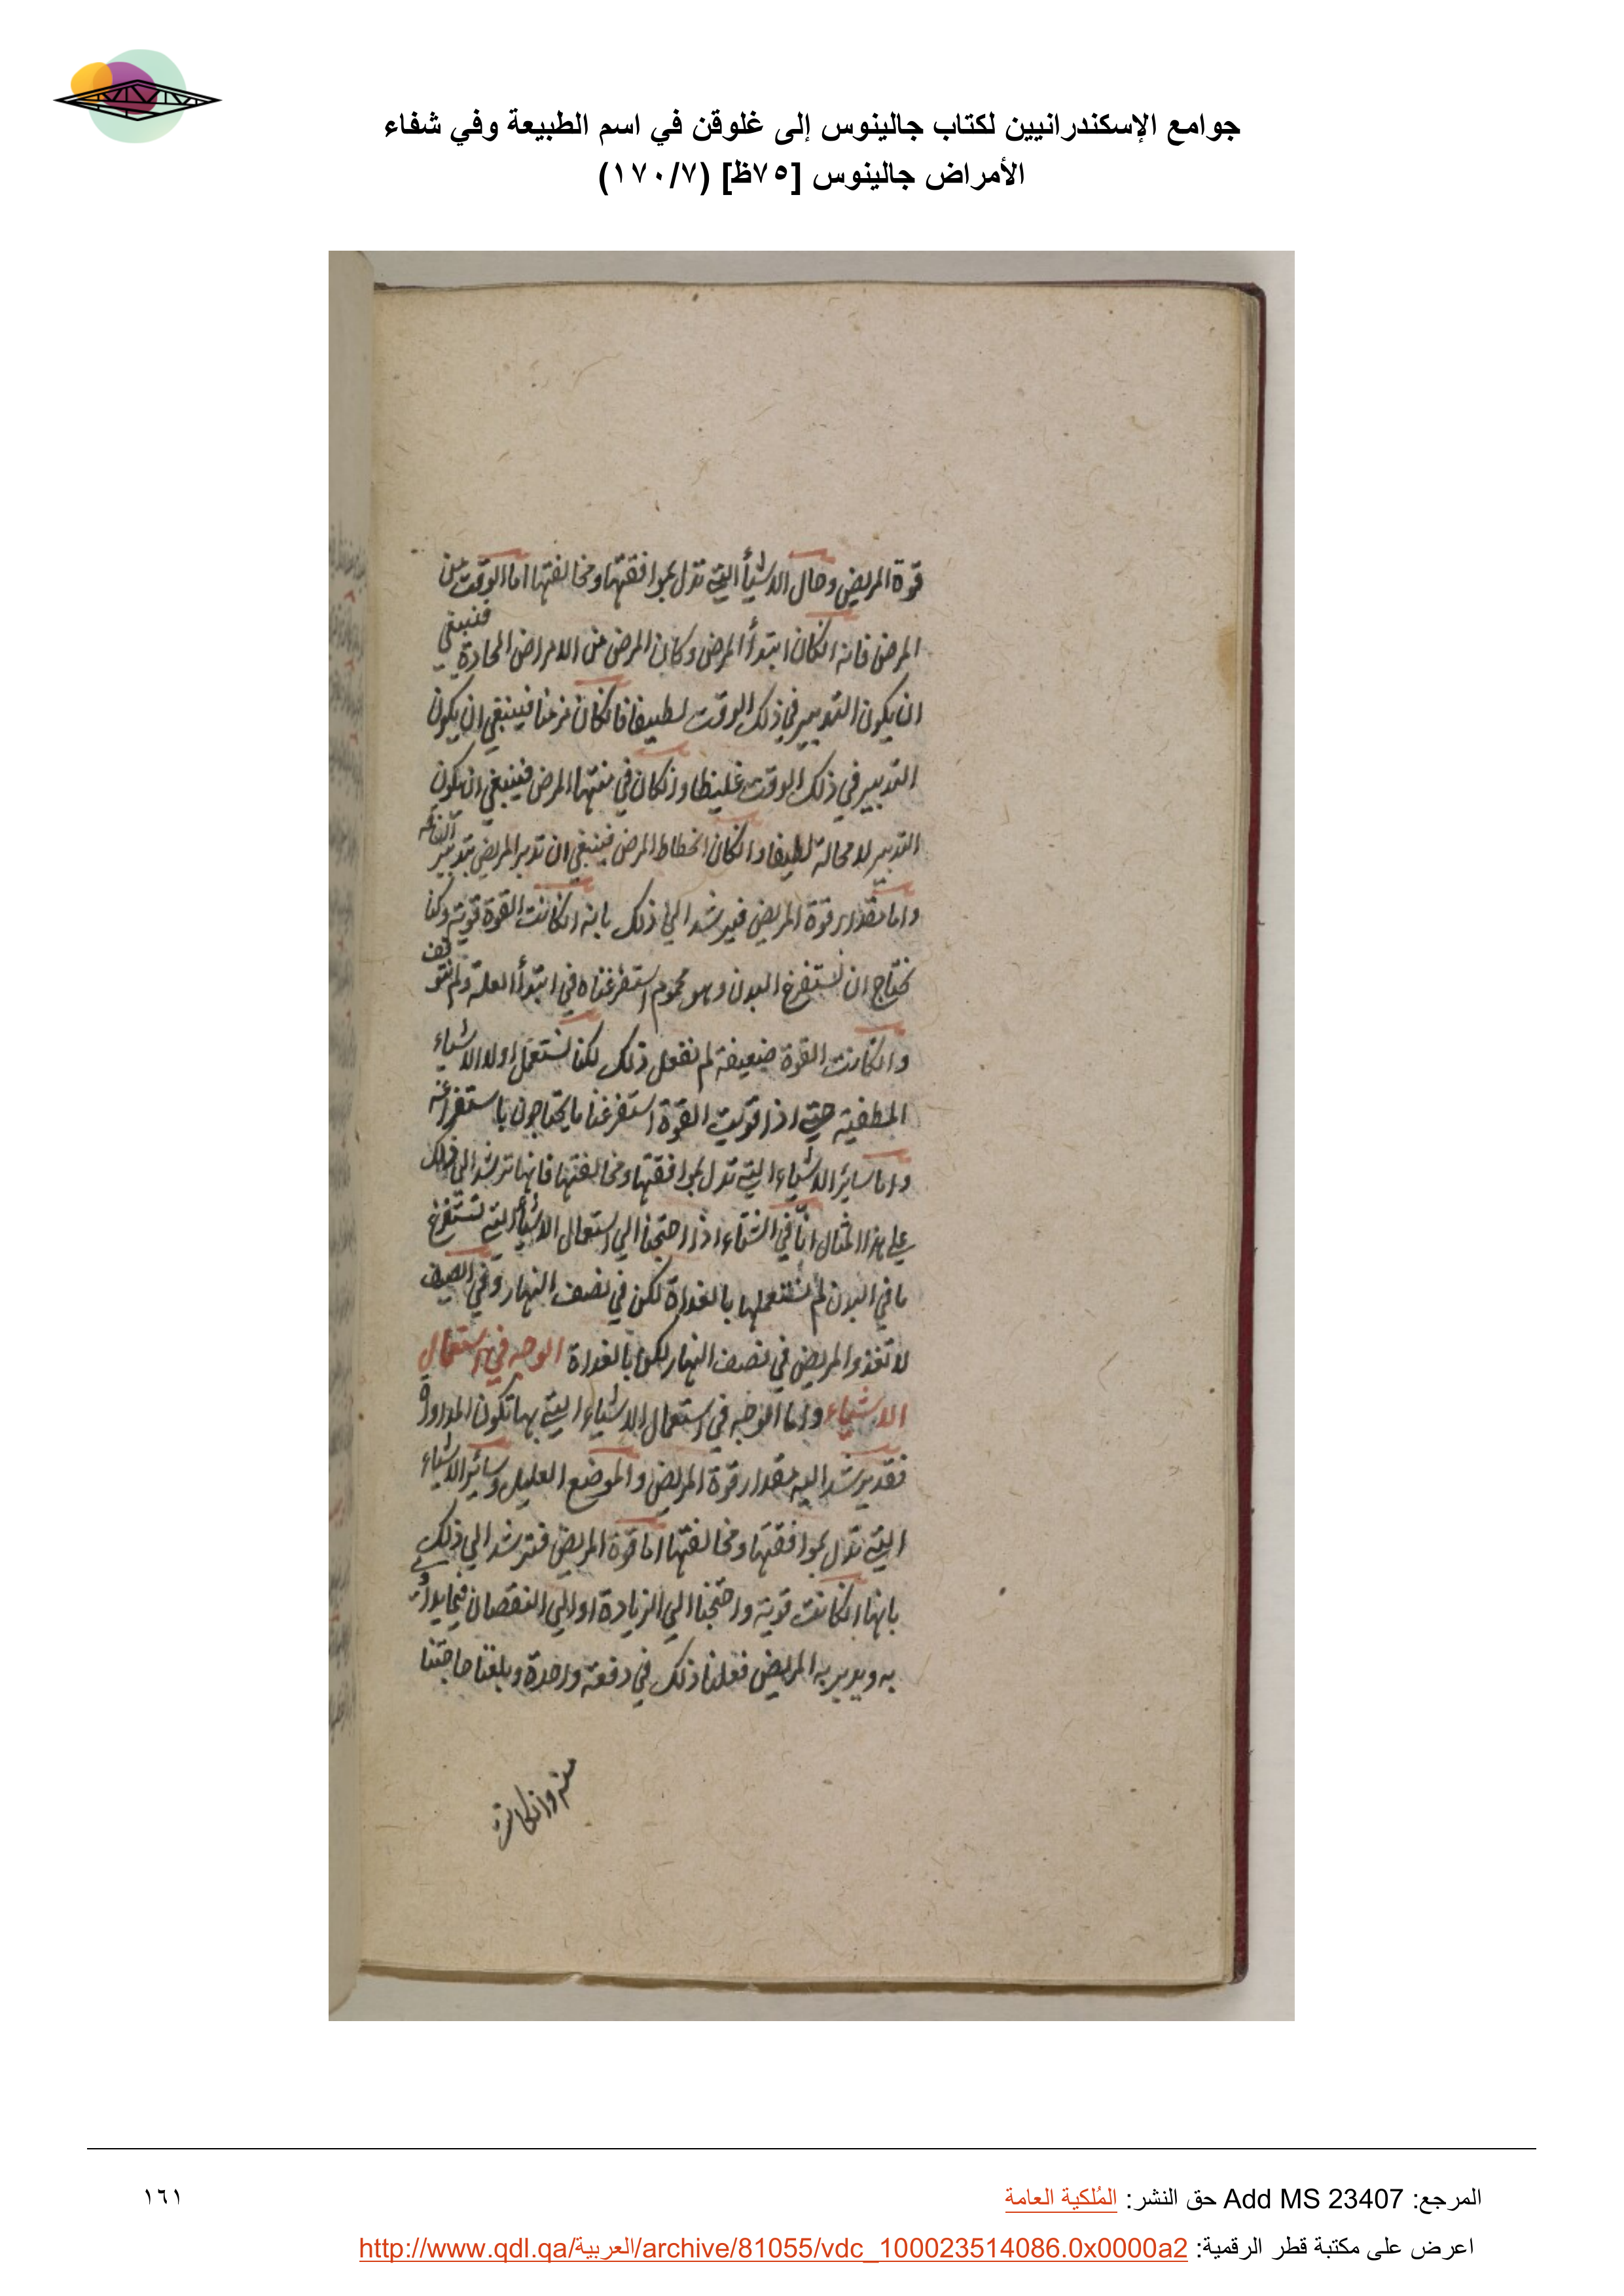 جوامع الإسكندرانيين لكتاب جالينوس إلى غلوقن في اسم الطبيعة وفي شفاء
الأمراض جالينوس [٧٥ظ] (١٧٠/٧)
قوة المريض وحال الاشيأ التي تدل بموافقتها ومخالفتها اما الوقت من
المرض فانه انكان ابتدأ المرض وكان المرض من الامراض الحادة فينبغي
ان يكون التدبير في ذلك الوقت لطيفا فانكان مزمنا فينبغي ان يكون
التدبير في ذلك الوقت غليظا وانكان في منتها المرض فينبغي ان يكون
التدبير لا محالة لطيفا وانكان انحطاط المرض فينبغي ان تدبر المريض بتدبير
واما مقدار قوة المريض فيرشد الي ذلك بانه انكانت القوة قوية وكنا
نحتاج ان نستفرغ البدن وهو محموم استفرغناه في ابتدأ العلة ولم نتوقف
وانكانت القوة ضعيفة لم نفعل ذلك لكنا نستعمل اولا الاشياء
المطفية حتي اذا قويت القوة استفرغنا ما يحتاجون باستفراغه
واما سائر الاشياء التي تدل بموافقتها ومخالفتها فانها ترشد الي ذلك
علي هذا المثال انّا في الشتاء اذا احتجنا الي استعمال الاشيأ التي تستفرغ
ما في البدن لم نستعملها بالغداة لكن في نصف النهار وفي الصيف
لا تغذوا المريض في نصف النهار لكن بالغداة الوجه في استعمال
الاشياء واما الوجه في استعمال الاشياء التي بها تكون المداواة
فقد يرشد اليه مقدار قوة المريض والموضع العليل وسائر الاشياء
التي تدل بموافقتها ومخالفتها اما قوة المريض فترشد الي ذلك
بانها انكانت قوية واحتجنا الي الزيادة او الي النقصان فيما يداوي
به ويدبر به المريض فعلنا ذلك في دفعة واحدة وبلغنا حاجتنا
منه وانكانت
المرجع: Add MS 23407 حق النشر: المُلكية العامة
١٦١
اعرض على مكتبة قطر الرقمية: http://www.qdl.qa/العربية/archive/81055/vdc_100023514086.0x0000a2